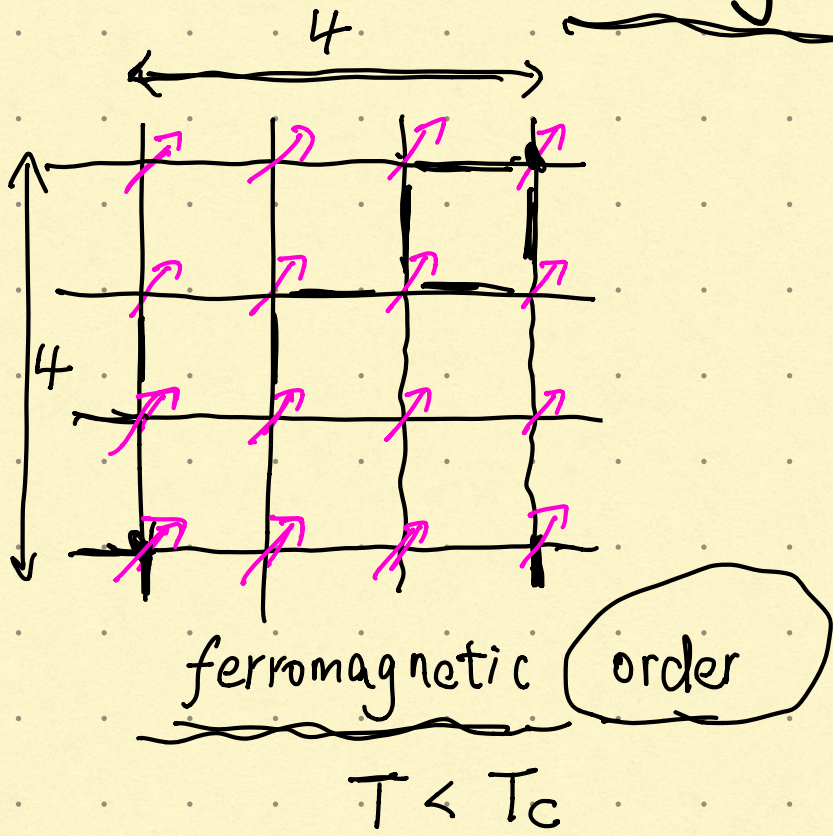 4
4
ferromagnetic order
T < Tc